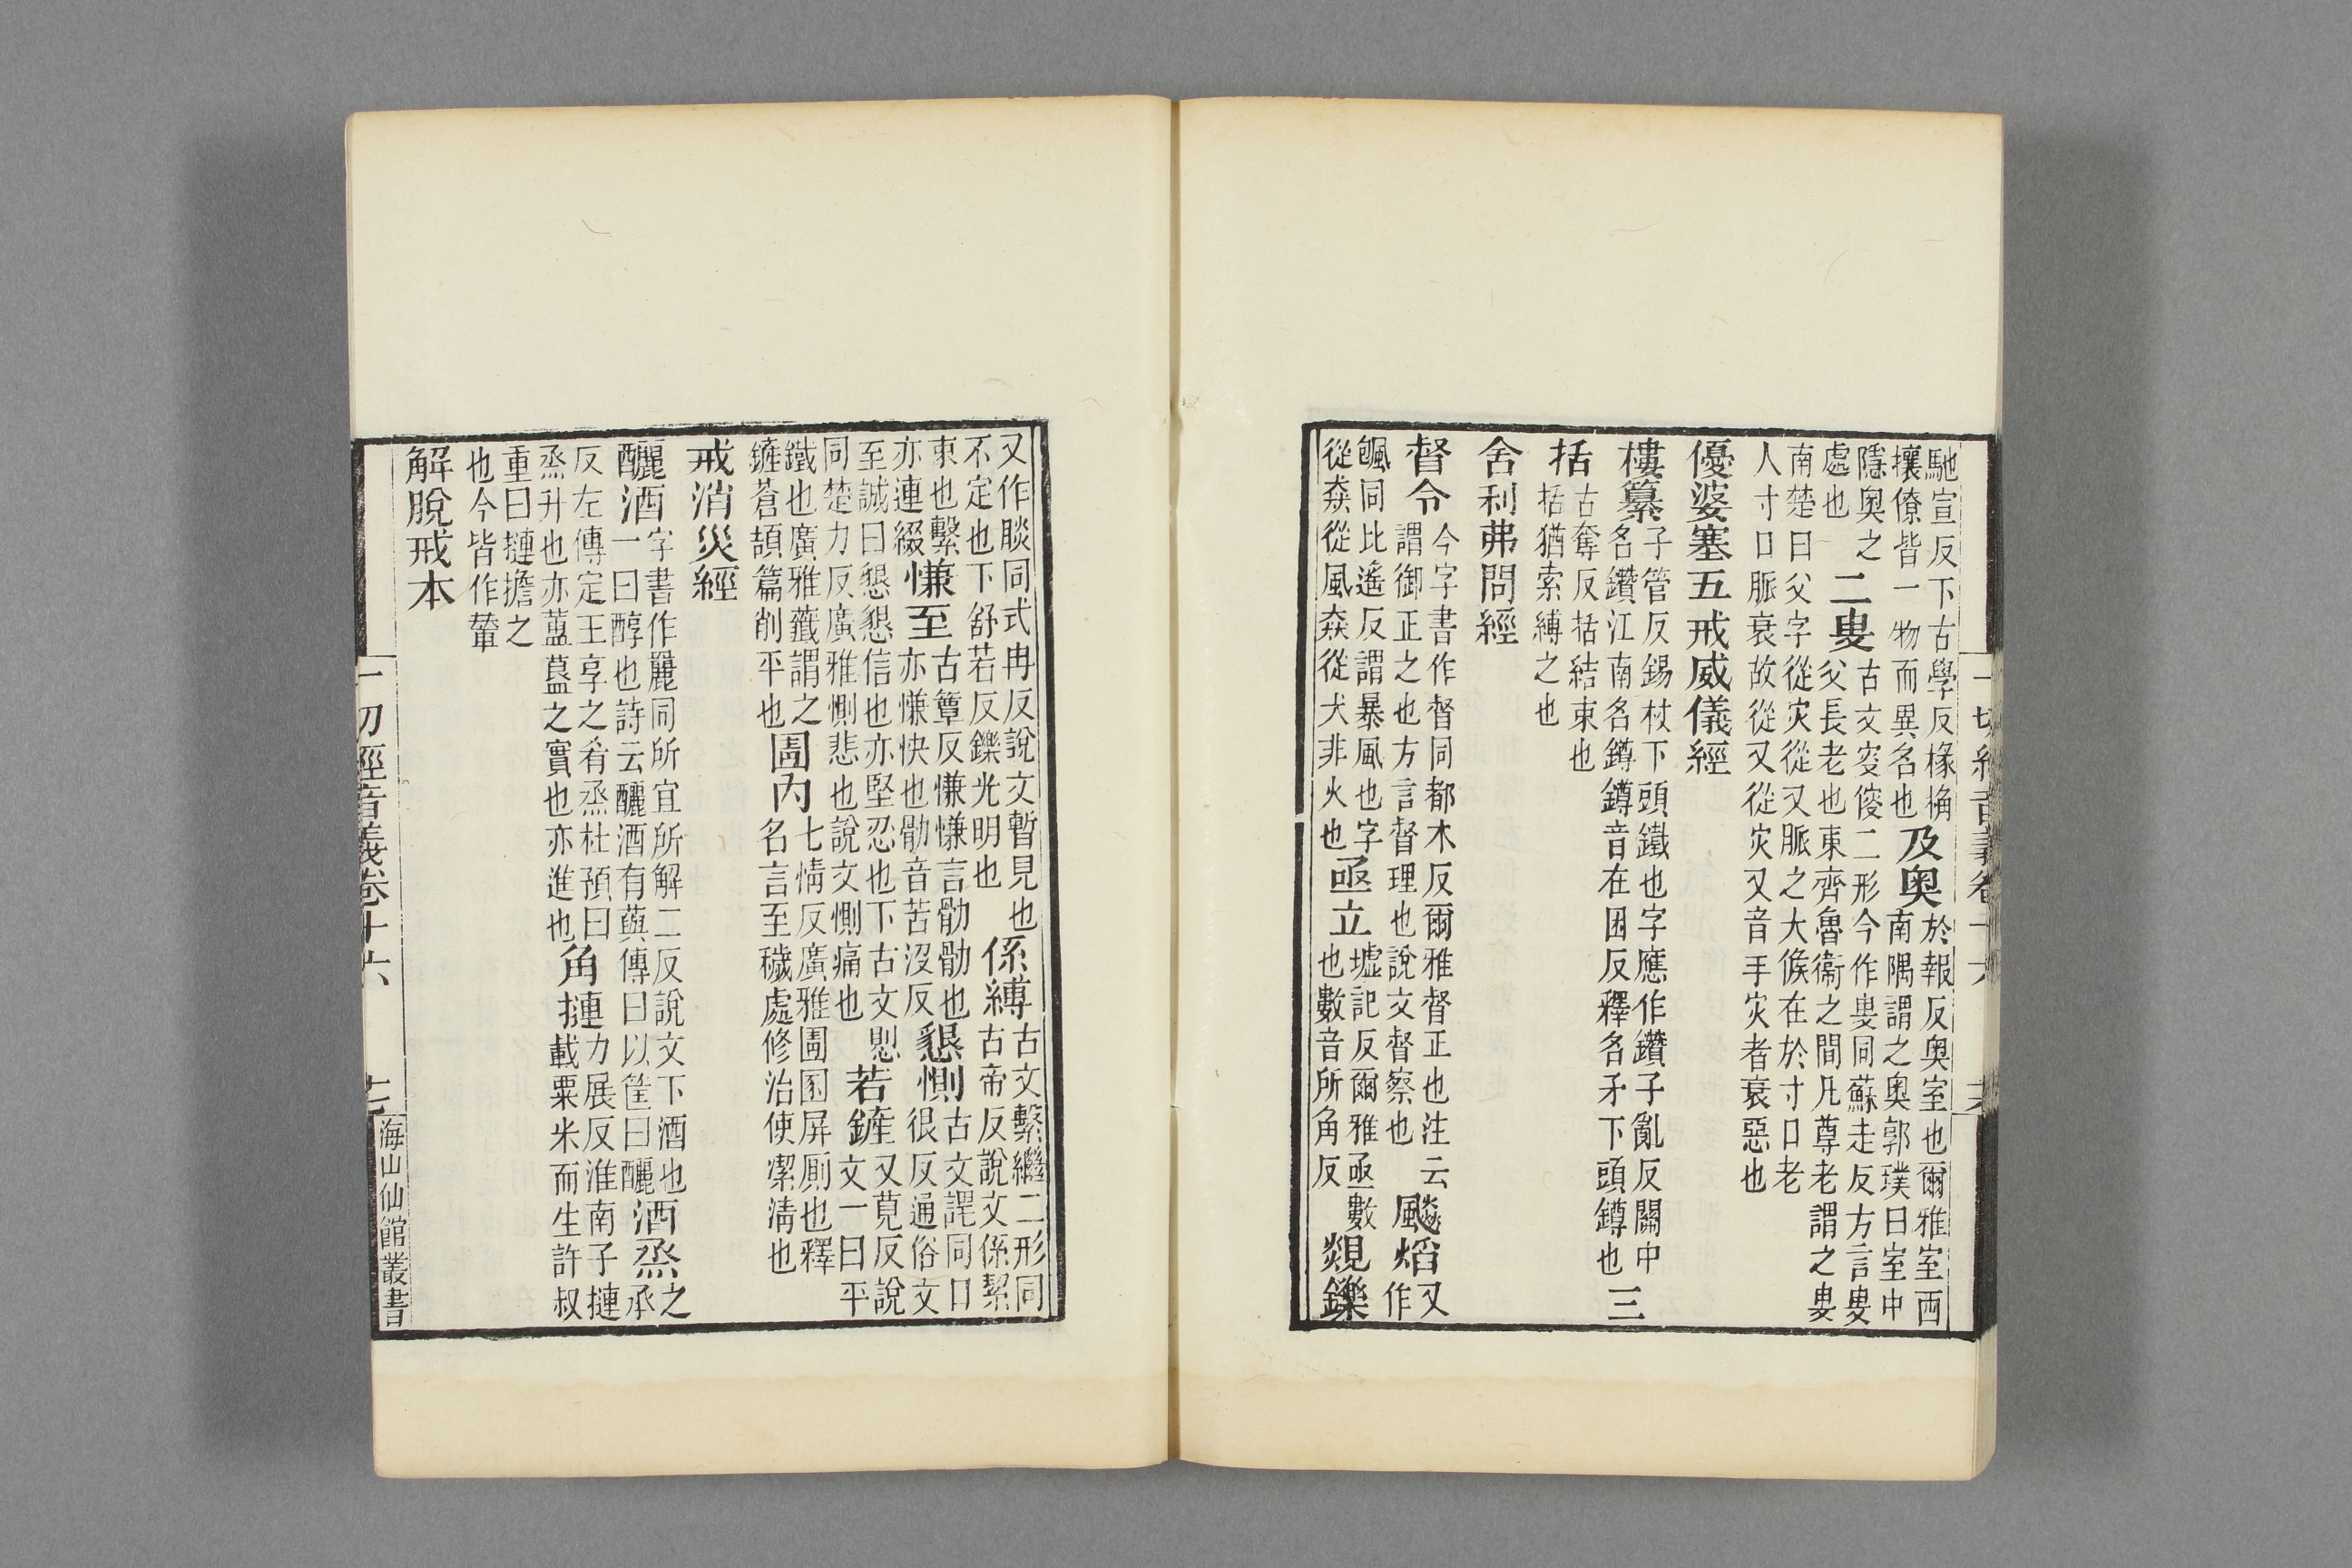 馳宣反下古學反椽桷攘僚皆一物而異名也及奥於報反奥室也爾雅室西南隅謂之奥郭璞曰室中
隱奥之處也二叟古文㕙傁二形今作叟同蘇走反方言叟父長老也東齊魯衞之間凡尊老謂之叟
南楚曰父字從灾從又脈之大候在於寸口老人寸口脈衰故從又從灾又音手灾者衰惡也
優婆塞五戒威儀經
樓纂子管反錫杖下頭鐵也字應作鑽子亂反關中名鑽江南名鐏鐏音在困反釋名矛下頭鐏也三
括古奪反括結束也括猶索縛之也
舍利弗問經
督令今字書作督同都木反爾雅督正也注云謂御正之也方言督理也說文督察也飈焰又作
颻同比遙反謂暴風也字從猋從風猋從犬非火也亟立墟記反爾雅亟數也數音所角反覢鑠
又作睒同式冉反說文暫見也不定也下舒若反鑠光明也係縛古文繫繼二形同古帝反說文係絜
束也繫亦連綴慊至古簟反慊慊言劶劶也亦慊快也劶音苦沒反懇惻古文詪同口很反通俗文
至誠曰懇懇信也亦堅忍也下古文同楚力反廣雅惻悲也說文惻痛也若鏟又莧反說文一曰平
鐵也廣雅籤謂之鏟蒼頡篇削平也圊内七情反廣雅圊圂屏厠也釋名言至穢處修治使潔清也
戒消災經
釃酒字書作麗同所宜所解二反說文下酒也一曰醇也詩云釃酒有藇傳曰以筐曰釃酒烝之承
反左傳定王享之肴烝杜預曰烝升也亦薀之實也亦進也角摙力展反淮南子摙載粟米而生許叔
重曰摙擔之也今皆作輦
解脫戒本
一切經音義卷十六
海山仙館叢書